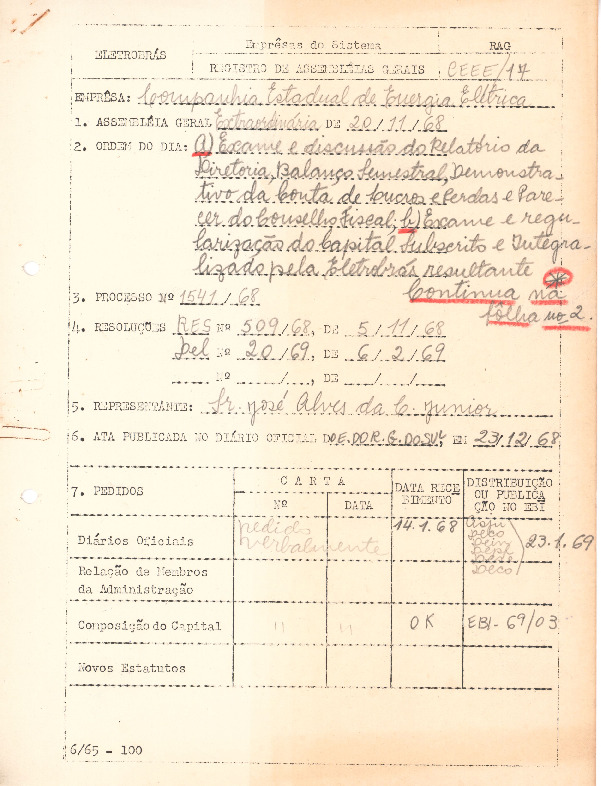 ELETROBRÁS
Emprêsas do Sistema
RAG
REGISTRO DE ASSEMBLÉIAS GERAIS
CEEE/17
EMPRÊSA: Companhia Estadual de Energia Elétrica
1. ASSEMBLÉIA GERAL Extraordinária DE 20/11/68
2. ORDEM DO DIA: a) Exame e discussão do Relatório da
Diretoria, Balanço Semestral, Demonstra-
tivo da Conta de Lucros e Perdas e Pare-
cer do Conselho Fiscal; b) Exame e regu-
larização do Capital Subscrito e Integra-
lizado pela Eletrobrás resultante
Continua na
fôlha nº 2.
3. PROCESSO Nº 1541/68
4. RESOLUÇÕES RES Nº 509/68, DE 5/11/68
Del Nº 20/69, DE 6/2/69
Nº / , DE / /
5. REPRESENTANTE: Sr. José Alves da C. Junior
6. ATA PUBLICADA NO DIÁRIO OFICIAL DO E. DO R. G. DO SUL EM 23/12/68
7. PEDIDOS
CARTA
Nº
DATA
DATA RECE
BIMENTO
DISTRIBUIÇÃO
OU PUBLICA
ÇÃO NO EBI
Diários Oficiais
pedidos
verbalmente
14.1.68
Deco
23.1.69
Relação de Membros
da Administração
Composição do Capital
" "
OK
EBI-69/03
Novos Estatutos
6/65 - 100